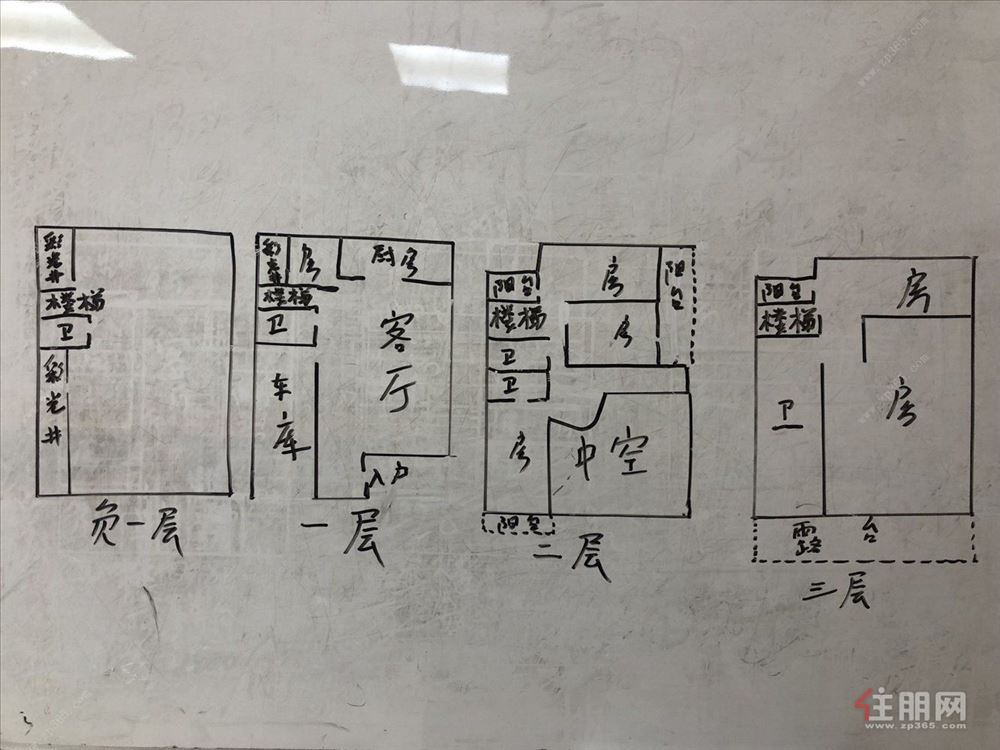 彩光井
楼梯
卫
彩光井
负一层
彩光井
房
厨房
楼梯
卫
客厅
车库
入户
一层
阳台
房
阳台
楼梯
房
卫
卫
房
中空
阳台
二层
阳台
房
楼梯
卫
房
露台
三层
住朋网
www.zp365.com